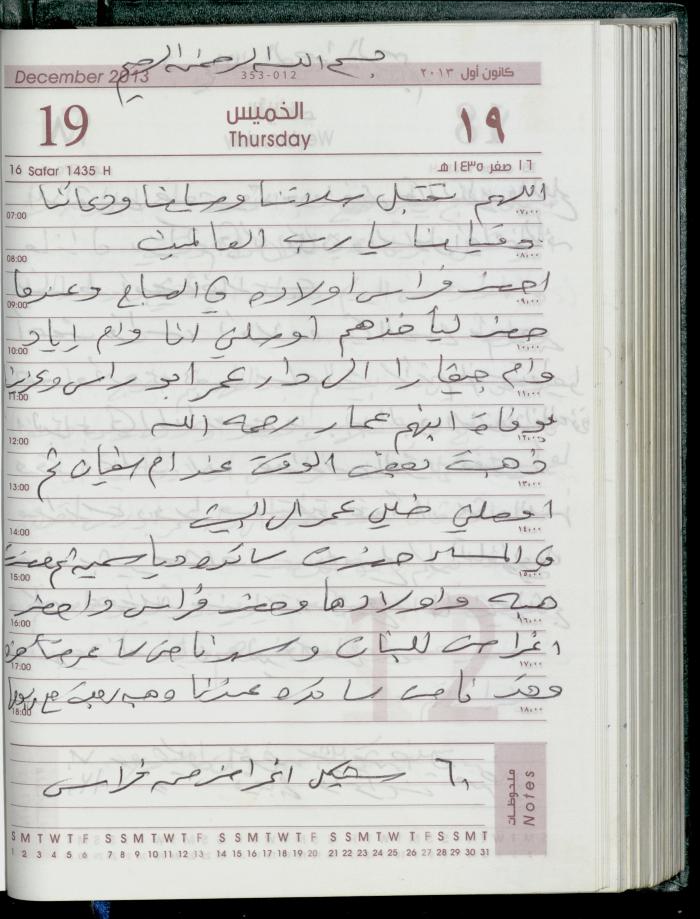 بسم الله الرحمن الرحيم
December 2013 353-012 كانون أول ٢٠١٣
19 الخميس ١٩
Thursday
16 Safar 1435 H ١٦ صفر ١٤٣٥ هـ
اللهم تقبل صلاتنا وصيامنا ودعائنا
07:00 ٠٧،٠٠
وقيامنا يا رب العالمين
08:00 ٠٨،٠٠
احضر فراس اولاده في الصباح وعندما
09:00 ٠٩،٠٠
حضر ليأخذهم اوصلني انا وام اياد
10:00 ١٠،٠٠
وام جيفارا الى دار عمر ابو راس وعزينا
11:00 ١١،٠٠
بوفاة ابنهم عمار رحمه الله
12:00 ١٢،٠٠
ذهبت بعض الوقت عند ام سفيان ثم
13:00 ١٣،٠٠
اوصلني عمر الى البيت
14:00 ١٤،٠٠
في المساء حضرت سائده وياسمين ثم حضرت
15:00 ١٥،٠٠
هبه واولادها وحضر فراس واحضر
16:00 ١٦،٠٠
اغراض للبنات
17:00 ١٧،٠٠
وقد نامت سائده عندنا وهبه
18:00 ١٨،٠٠
٦٠ شيكل اغراض من فراس
ملحوظات Notes
S M T W T F S S M T W T F S S M T W T F S S M T W T F S S M T
1 2 3 4 5 6 7 8 9 10 11 12 13 14 15 16 17 18 19 20 21 22 23 24 25 26 27 28 29 30 31